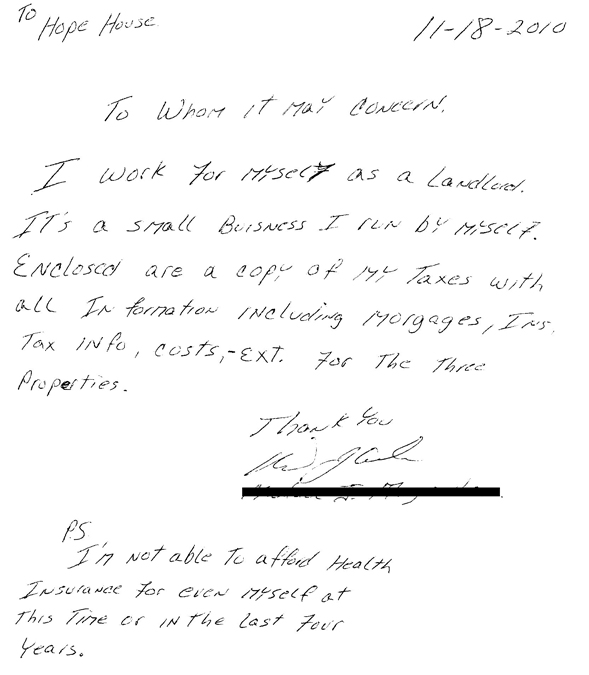 To
Hope House
11-18-2010
To Whom it may concern.
I work for myself as a Landlord.
It's a small Buisness I run by myself.
Enclosed are a copy of my Taxes with
all Information including Morgages, Ins,
Tax info, costs, - Ext. for the three
Properties.
Thank You
P.S
I'm not able to afford Health
Insurance for even myself at
this time or in the last four
years.